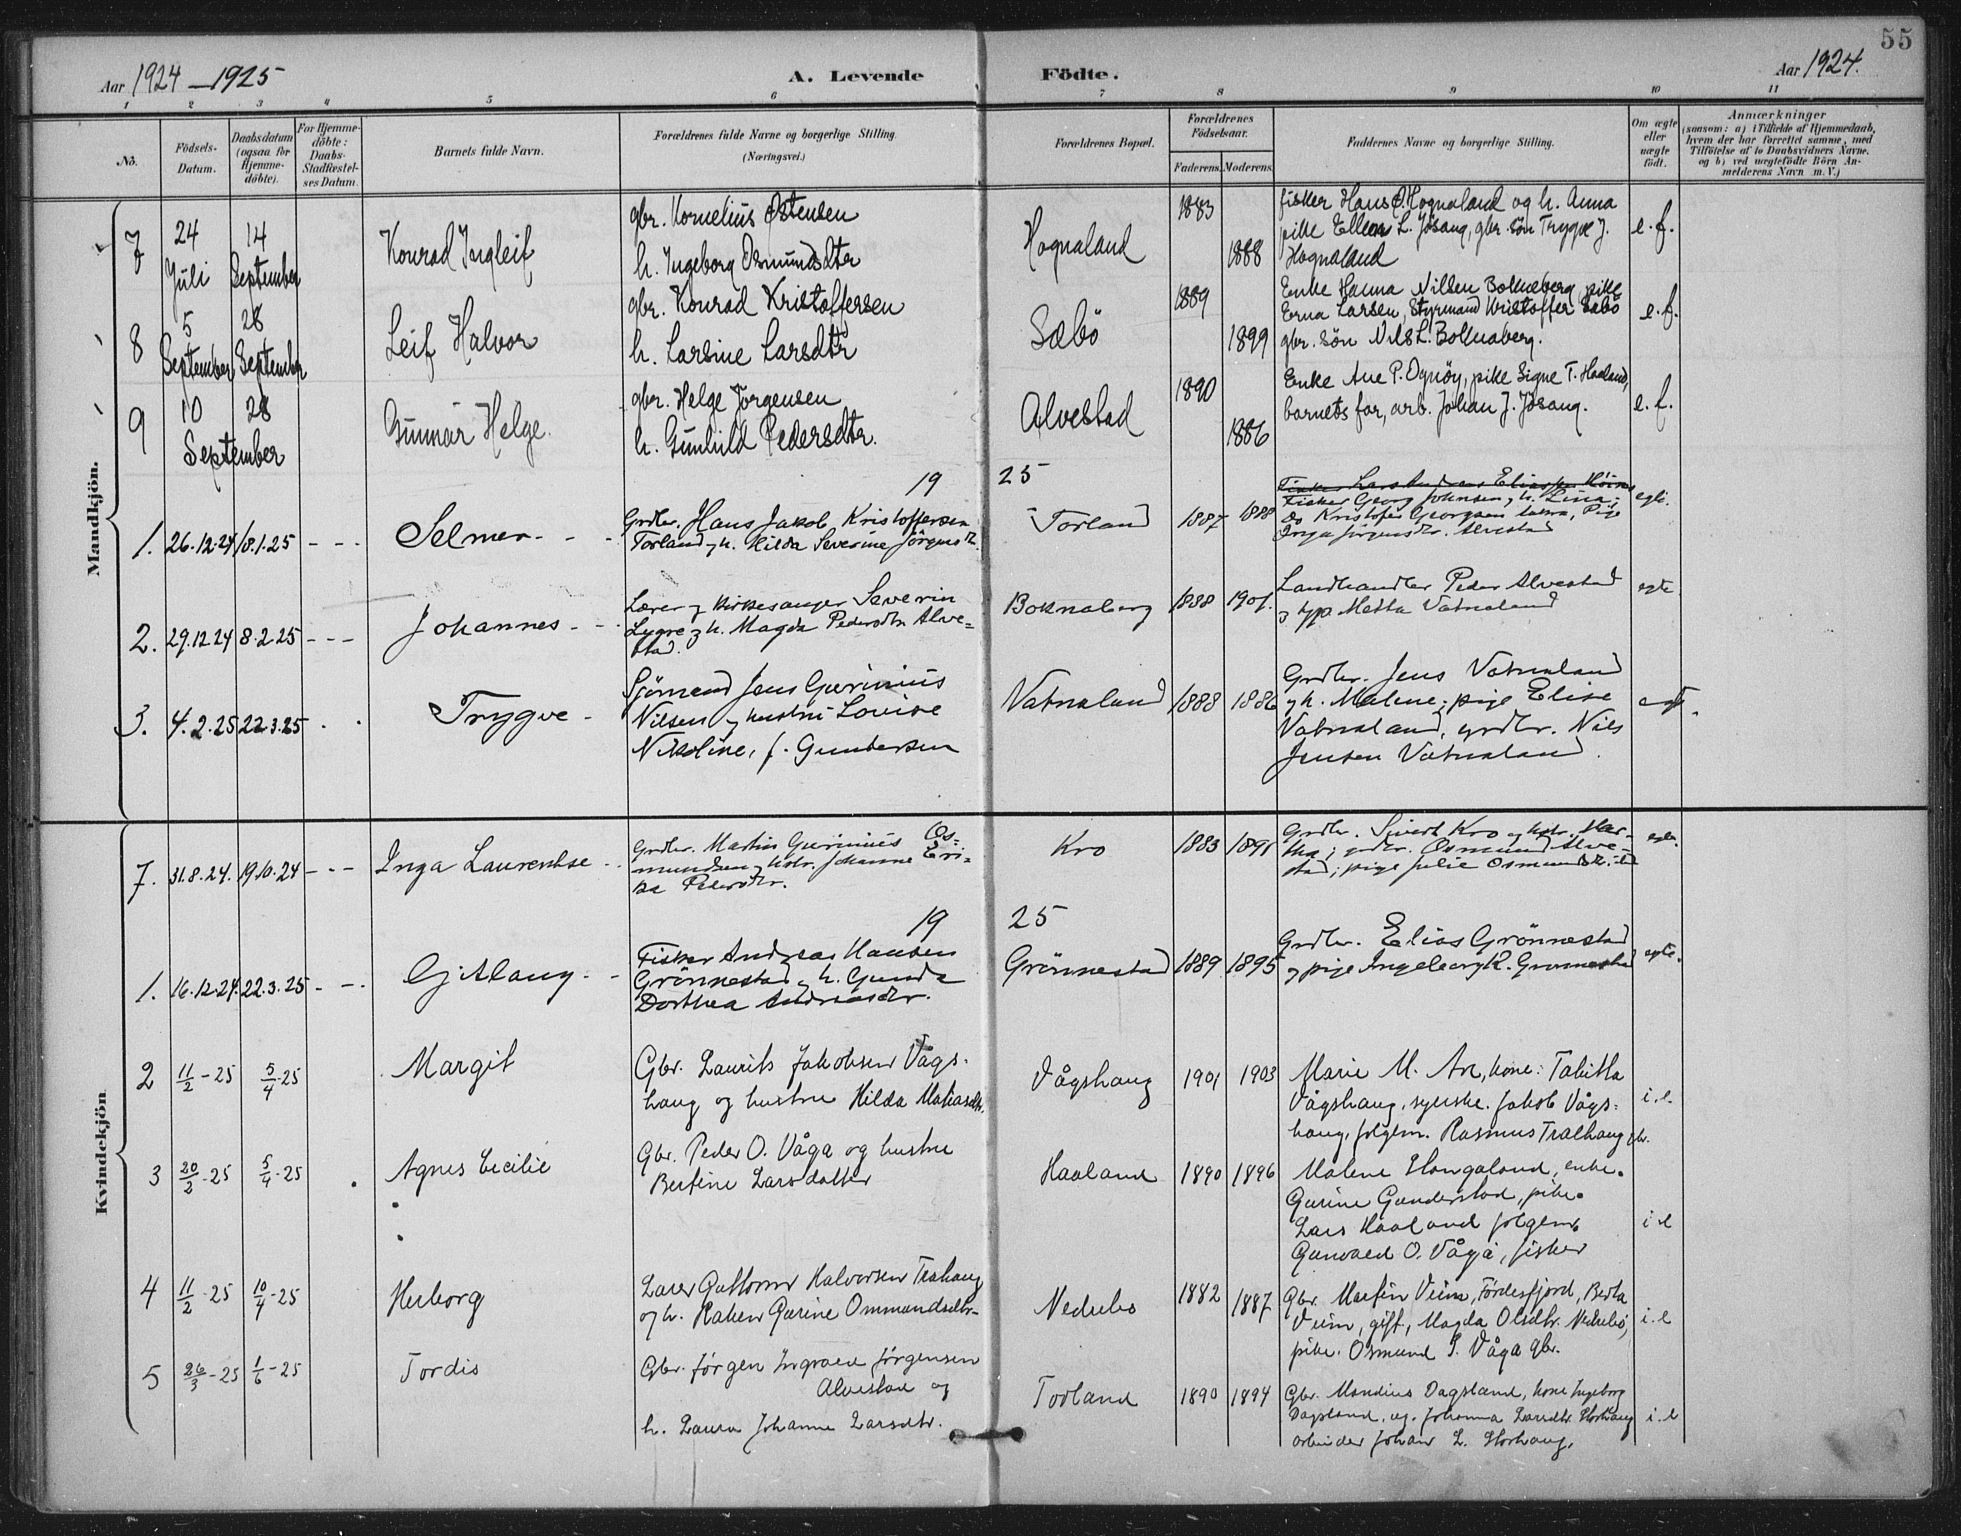 55
Aar 1924 – 1925
A. Levende Födte.
Aar 1924.
1 2 3 4 5 6 7 8 9 10 11
No.
Födsels-Datum.
Daabsdatum (ogsaa for Hjemme-döbte).
For Hjemme-döbte: Daabs-Stadfæstel-ses Datum.
Barnets fulde Navn.
Forældrenes fulde Navne og borgerlige Stilling. (Næringsvei.)
Forældrenes Bopæl.
Forældrenes Födselsaar.
Faderens. Moderens.
Faddernes Navne og borgerlige Stilling.
Om ægte eller uægte født.
Anmærkninger
(saasom: a) i Tilfælde af Hjemmedaab,
hvem der har forrettet samme, med
Tilföielse af to Daabsvidners Navne.
og b) ved uægtefödte Börn An-
melderens Navn m. V.)
Mandkjön.
7 24 Juli 14 September
Konrad Ingleif
gbr. Kornelius Østensen
h. Ingeborg Osmundsdtr
Hognaland
1883 1888
fisker Hans O. Hognaland og h. Anna
pike Ellen L. Jösang, gbr. sön Trygve J.
Hognaland
e. f.
8 5 September 28 September
Leif Halvor
gbr. Konrad Kristoffersen
h. Larsine Larsdtr
Sæbö
1889 1899
Enke Hanna Nilsen Boknaberg, pike
Erna Larsen, Styrmand Kristoffer Sæbö
gbr. sön Nils L. Boknaberg.
e. f.
9 10 28 September
Gunnar Helge.
gbr. Helge Jörgensen
h. Gunhild Pedersdtr.
Alvestad
1890 1886
Enke Ane P. Ognöy, pike Signe T. Haaland,
barnets far, arb. Johan J. Jösang.
e. f.
19 25
1. 26.12.24 18.1.25 - - -
Selmer - -
Grdbr. Hans Jakob Kristoffersen
Torland og h. Hilda Severine Jörgensdtr.
Torland
1887 1888
Fisker Georg Johnsen og h. Lina;
Pige
Inga Jörgensdtr. Alvestad
2. 29.12.24 8.2.25 - - -
Johannes - -
Lærer og kirkesanger Severin
Lygre og h. Magda Pedersdtr Alve=
stad.
Boknaberg
1888 1901.
Landhandler Peder Alvestad
Vatnaland
egte
3. 4.2.25 22.3.25
Trygve -
Sjömand Jens Gurinius
Nilsen og hustru Lovise
Nikoline, f. Gundersen
Vatnaland
1888 1886
Grdbr. Jens Vatnaland
og h. Malene; pige Elise
Vatnaland, grdbr. Nils
Jensen Vatnaland.
Kvindekjön
7. 31.8.24. 19.10.24 - - -
Inga Laurentse - -
Grdbr. Martin Gurinius Os-
mundsen og hstr. Johanne Eri-
ka Pedersdtr.
Kro
1883 1891
Grdbr. Sivert Kro og hstr. Mar-
tha; grdbr. Osmund Alve-
stad; pige Julie Osmundsdtr.
19 25
1. 16.12.24. 22.3.25 - - -
Gjitlaug - -
Fisker Andreas Hansen
Grönnestad og h. Gunda
Dorthea Andreasdtr.
Grönnestad
1889. 1895
Grdbr. Elias Grönnestad
og pige Ingeborg K. Grönnestad
egte.
2 11/2 - 25 5/4 - 25
Margit
Gbr. Laurits Jakobsen Vågs-
haug og hustru Hilda Matiasdtr.
Vågshaug
1901 1903
Marie M. Are, kone. Tabitha
Vågshaug, syerske. Jakob Vågs-
haug, folgem. Rasmus Tralhaug gbr.
i. e.
3 20/2 - 25 5/4 - 25
Agnes Cecilie
Gbr. Peder O. Våga og hustru
Bertine Larsdatter
Haaland
1890 1896
Malene Hongaland, enke.
Gurine Gunderstad, pike.
Lars Haaland folgem.
Gunvald O. Våga, fisker
i e
4 11/2 - 25 10/4 - 25
Herborg
Lærer Guttorm Halvorsen Trahaug
og h. Raken Gurine Ommundsdtr.
Nedrebö
1882 1887
Gbr. Martin Veim, Fördesfjord, Berta
Veim, gift, Magda Olsdtr. Nedrebö,
pike. Osmund I. Våga gbr.
i. e
5 26/3 - 25 1/6 - 25
Tordis
Gbr. Jörgen Ingvald Jörgensen
Alvestad og
h. Laura Johanne Larsdtr.
Torland
1890 1894
Gbr. Mandius Dagsland, kone Ingeborg
Dagsland, og Johanna Larsdtr. Storhaug
arbeider Johan L. Storhaug.
i. e